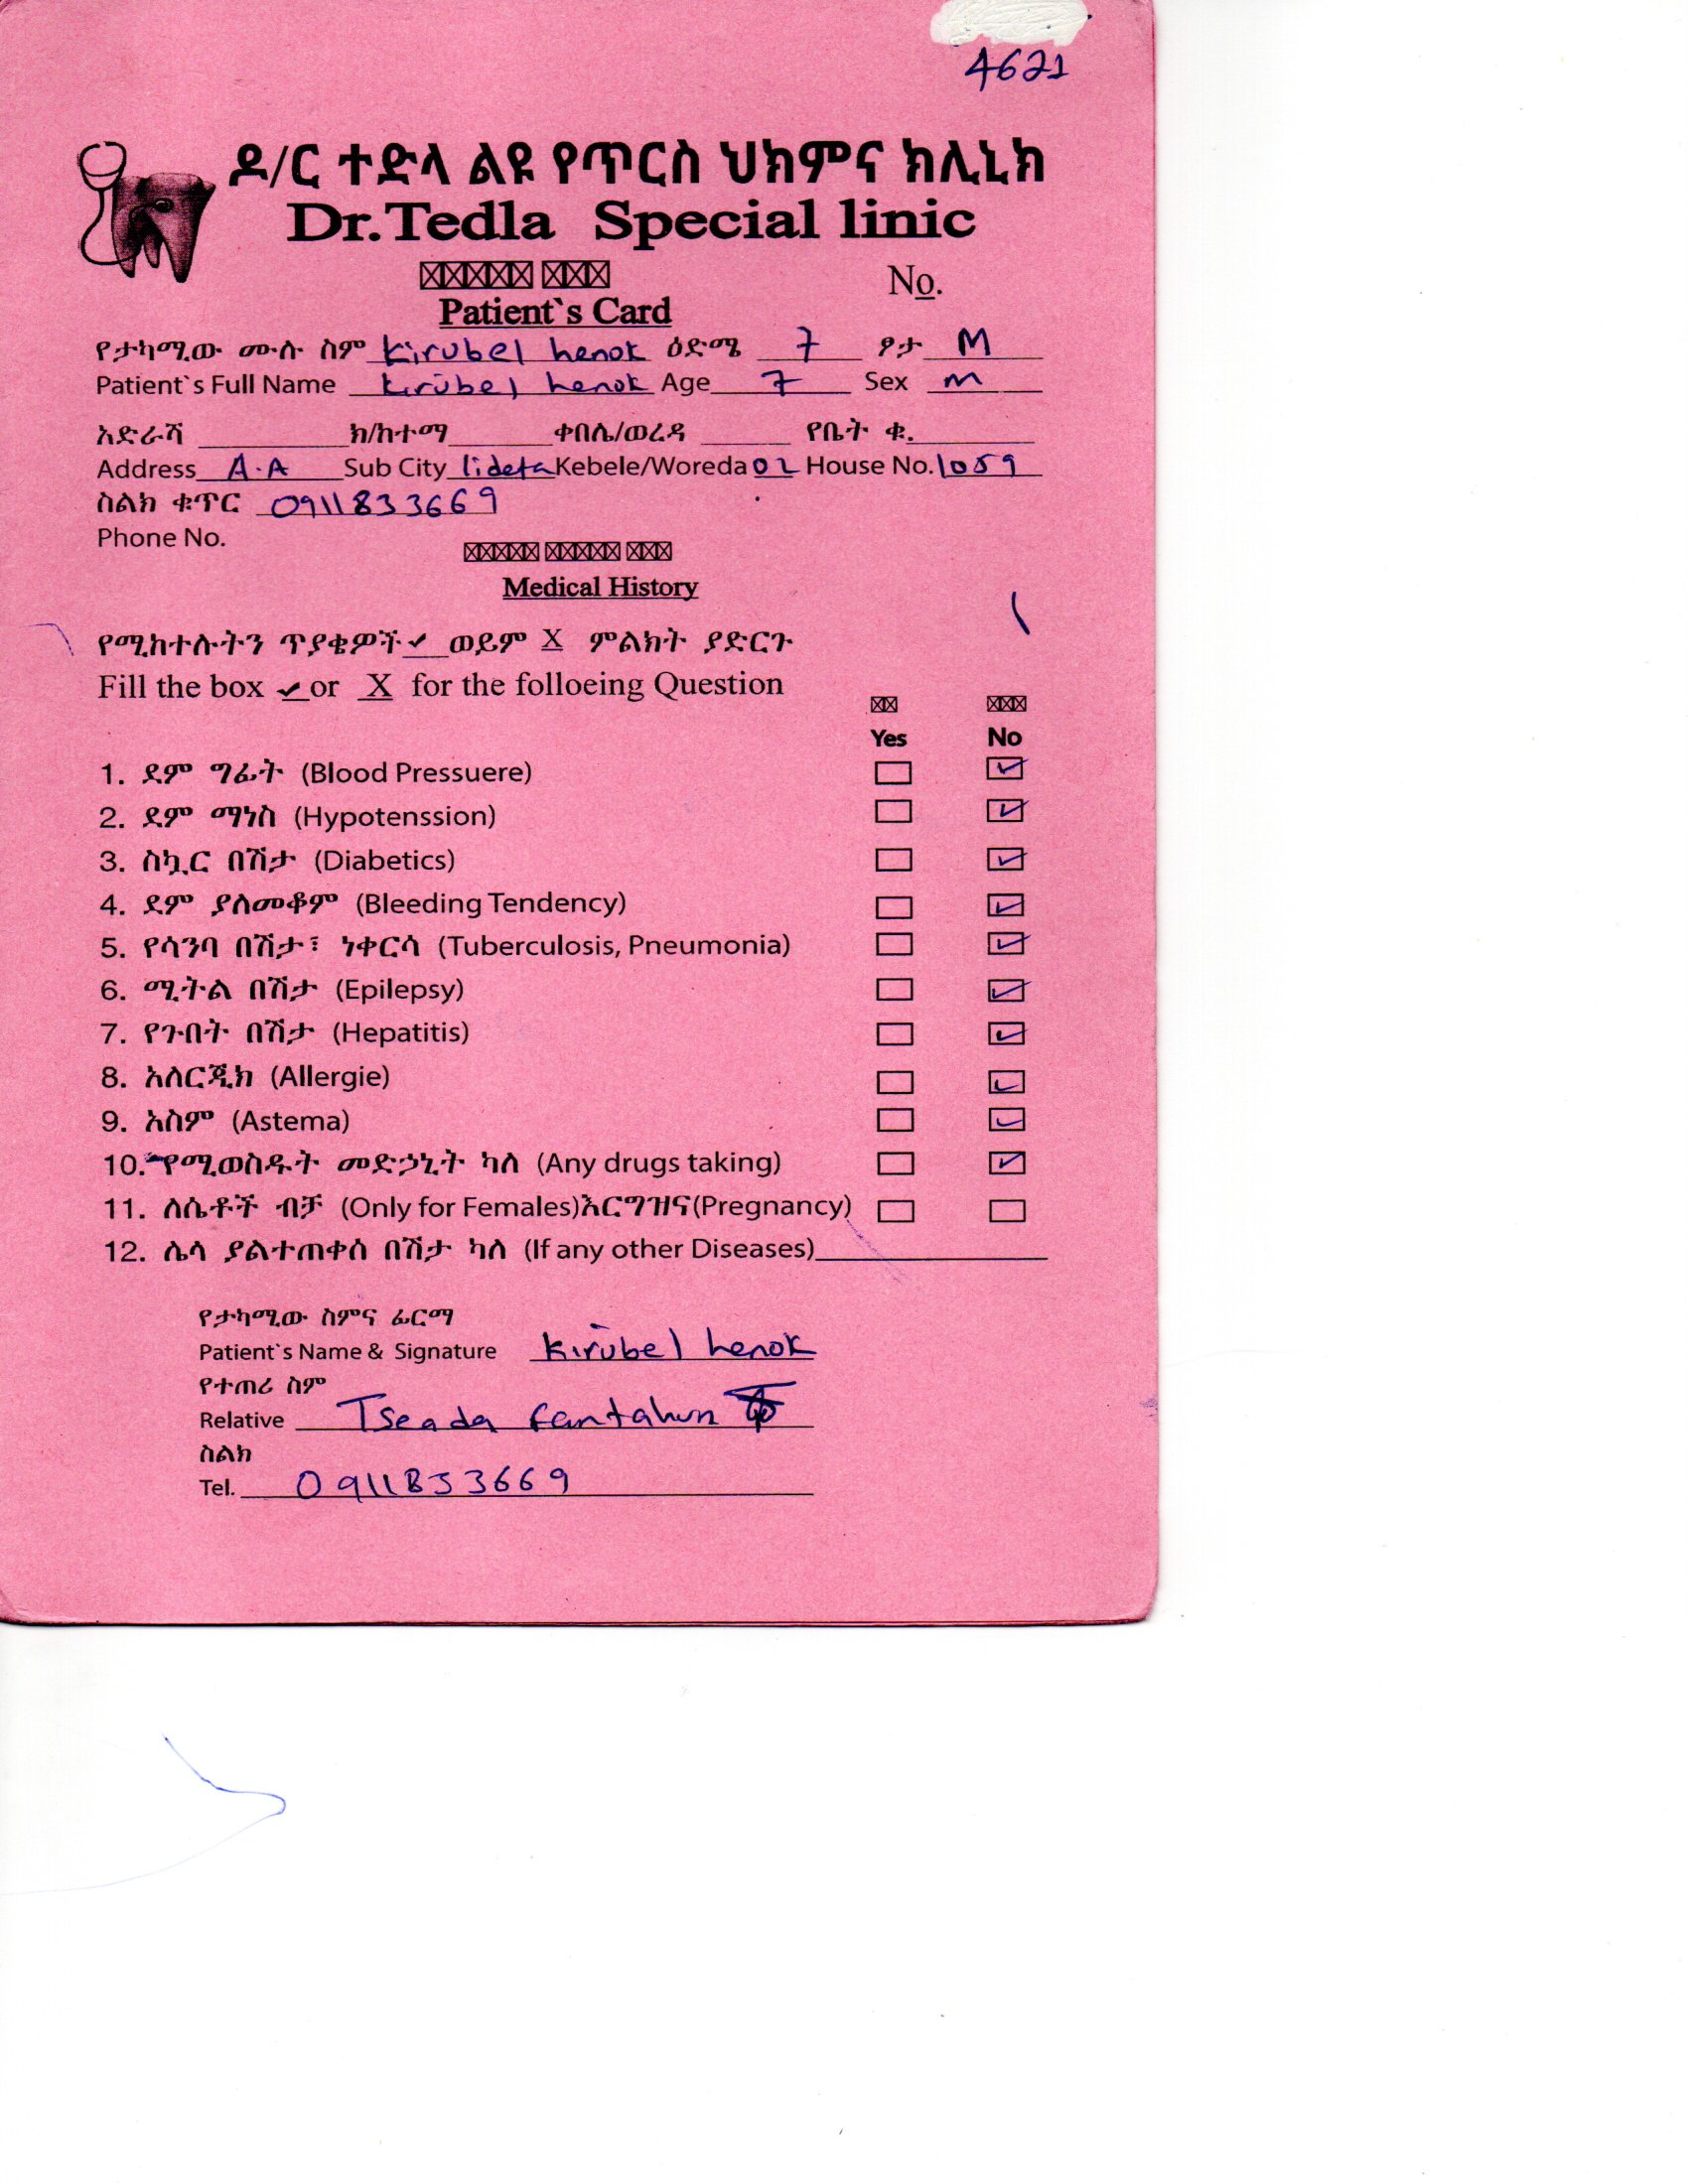 4621
ዶ/ር ተድላ ልዩ የጥርስ ህክምና ክሊኒክ
Dr.Tedla Special linic
No.
Patient`s Card
የታካሚው ሙሉ ስም Kirubel henok ዕድሜ 7 ፆታ M
Patient`s Full Name Kirubel henok Age 7 Sex m
አድራሻ ክ/ከተማ ቀበሌ/ወረዳ የቤት ቁ.
Address A.A Sub City lideta Kebele/Woreda 02 House No. 1059
ስልክ ቁጥር 0911833669
Phone No.
Medical History
የሚከተሉትን ጥያቄዎች ✓ ወይም X ምልክት ያድርጉ
Fill the box ✓ or X for the folloeing Question
Yes No
1. ደም ግፊት (Blood Pressuere) ☐ ☑
2. ደም ማነስ (Hypotenssion) ☐ ☑
3. ስኳር በሽታ (Diabetics) ☐ ☑
4. ደም ያለመቆም (Bleeding Tendency) ☐ ☑
5. የሳንባ በሽታ፣ ነቀርሳ (Tuberculosis, Pneumonia) ☐ ☑
6. ሚትል በሽታ (Epilepsy) ☐ ☑
7. የጉበት በሽታ (Hepatitis) ☐ ☑
8. አለርጂክ (Allergie) ☐ ☑
9. አስም (Astema) ☐ ☑
10. የሚወስዱት መድኃኒት ካለ (Any drugs taking) ☐ ☑
11. ለሴቶች ብቻ (Only for Females)እርግዝና(Pregnancy) ☐ ☐
12. ሌላ ያልተጠቀሰ በሽታ ካለ (If any other Diseases)
የታካሚው ስምና ፊርማ
Patient`s Name & Signature Kirubel henok
የተጠሪ ስም
Relative Tseada fantahun
ስልክ
Tel. 0911833669